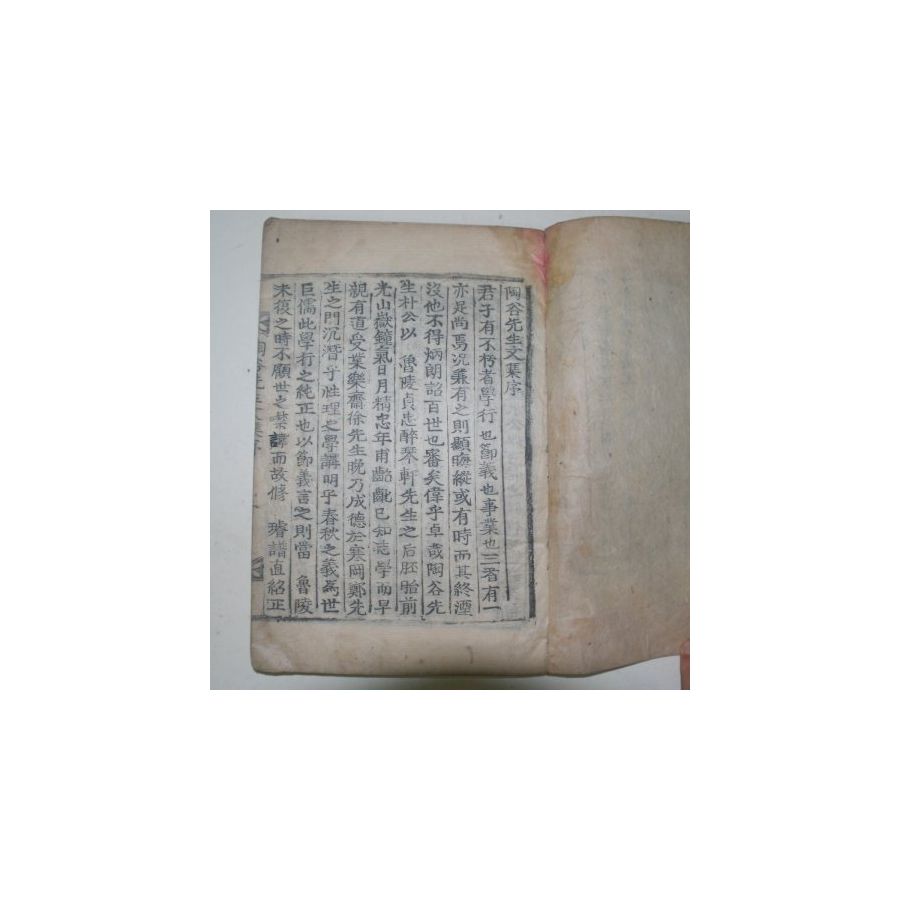 陶谷先生文集序
君子有不朽者學行也節義也事業也三者有一
亦足尚焉况兼有之則顯晦縱或有時而其終湮
沒他不得炳朗詔百世也審矣偉乎卓哉陶谷先
生朴公以 魯陵貞忠醉琴軒先生之后胚胎前
光山嶽鍾氣日月精忠年甫齠齔已知志學而早
親有道受業樂齋徐先生晩乃成德於寒岡鄭先
生之門沉潛乎性理之學講明乎春秋之義為世
巨儒此學行之純正也以節義言之則當 魯陵
未復之時不顧世之禁諱而敢修 璿譜直紹正